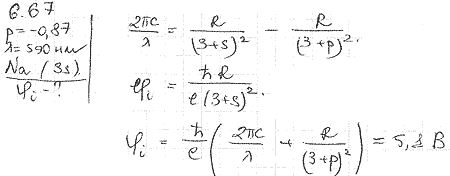 6.67
p = -0,87
λ = 590 нм
Na (3s)
φi - ?
2πc/λ = R/(3+s)² - R/(3+p)².
φi = ħR/e(3+s)².
φi = ħ/e (2πc/λ + R/(3+p)²) = 5,1 В